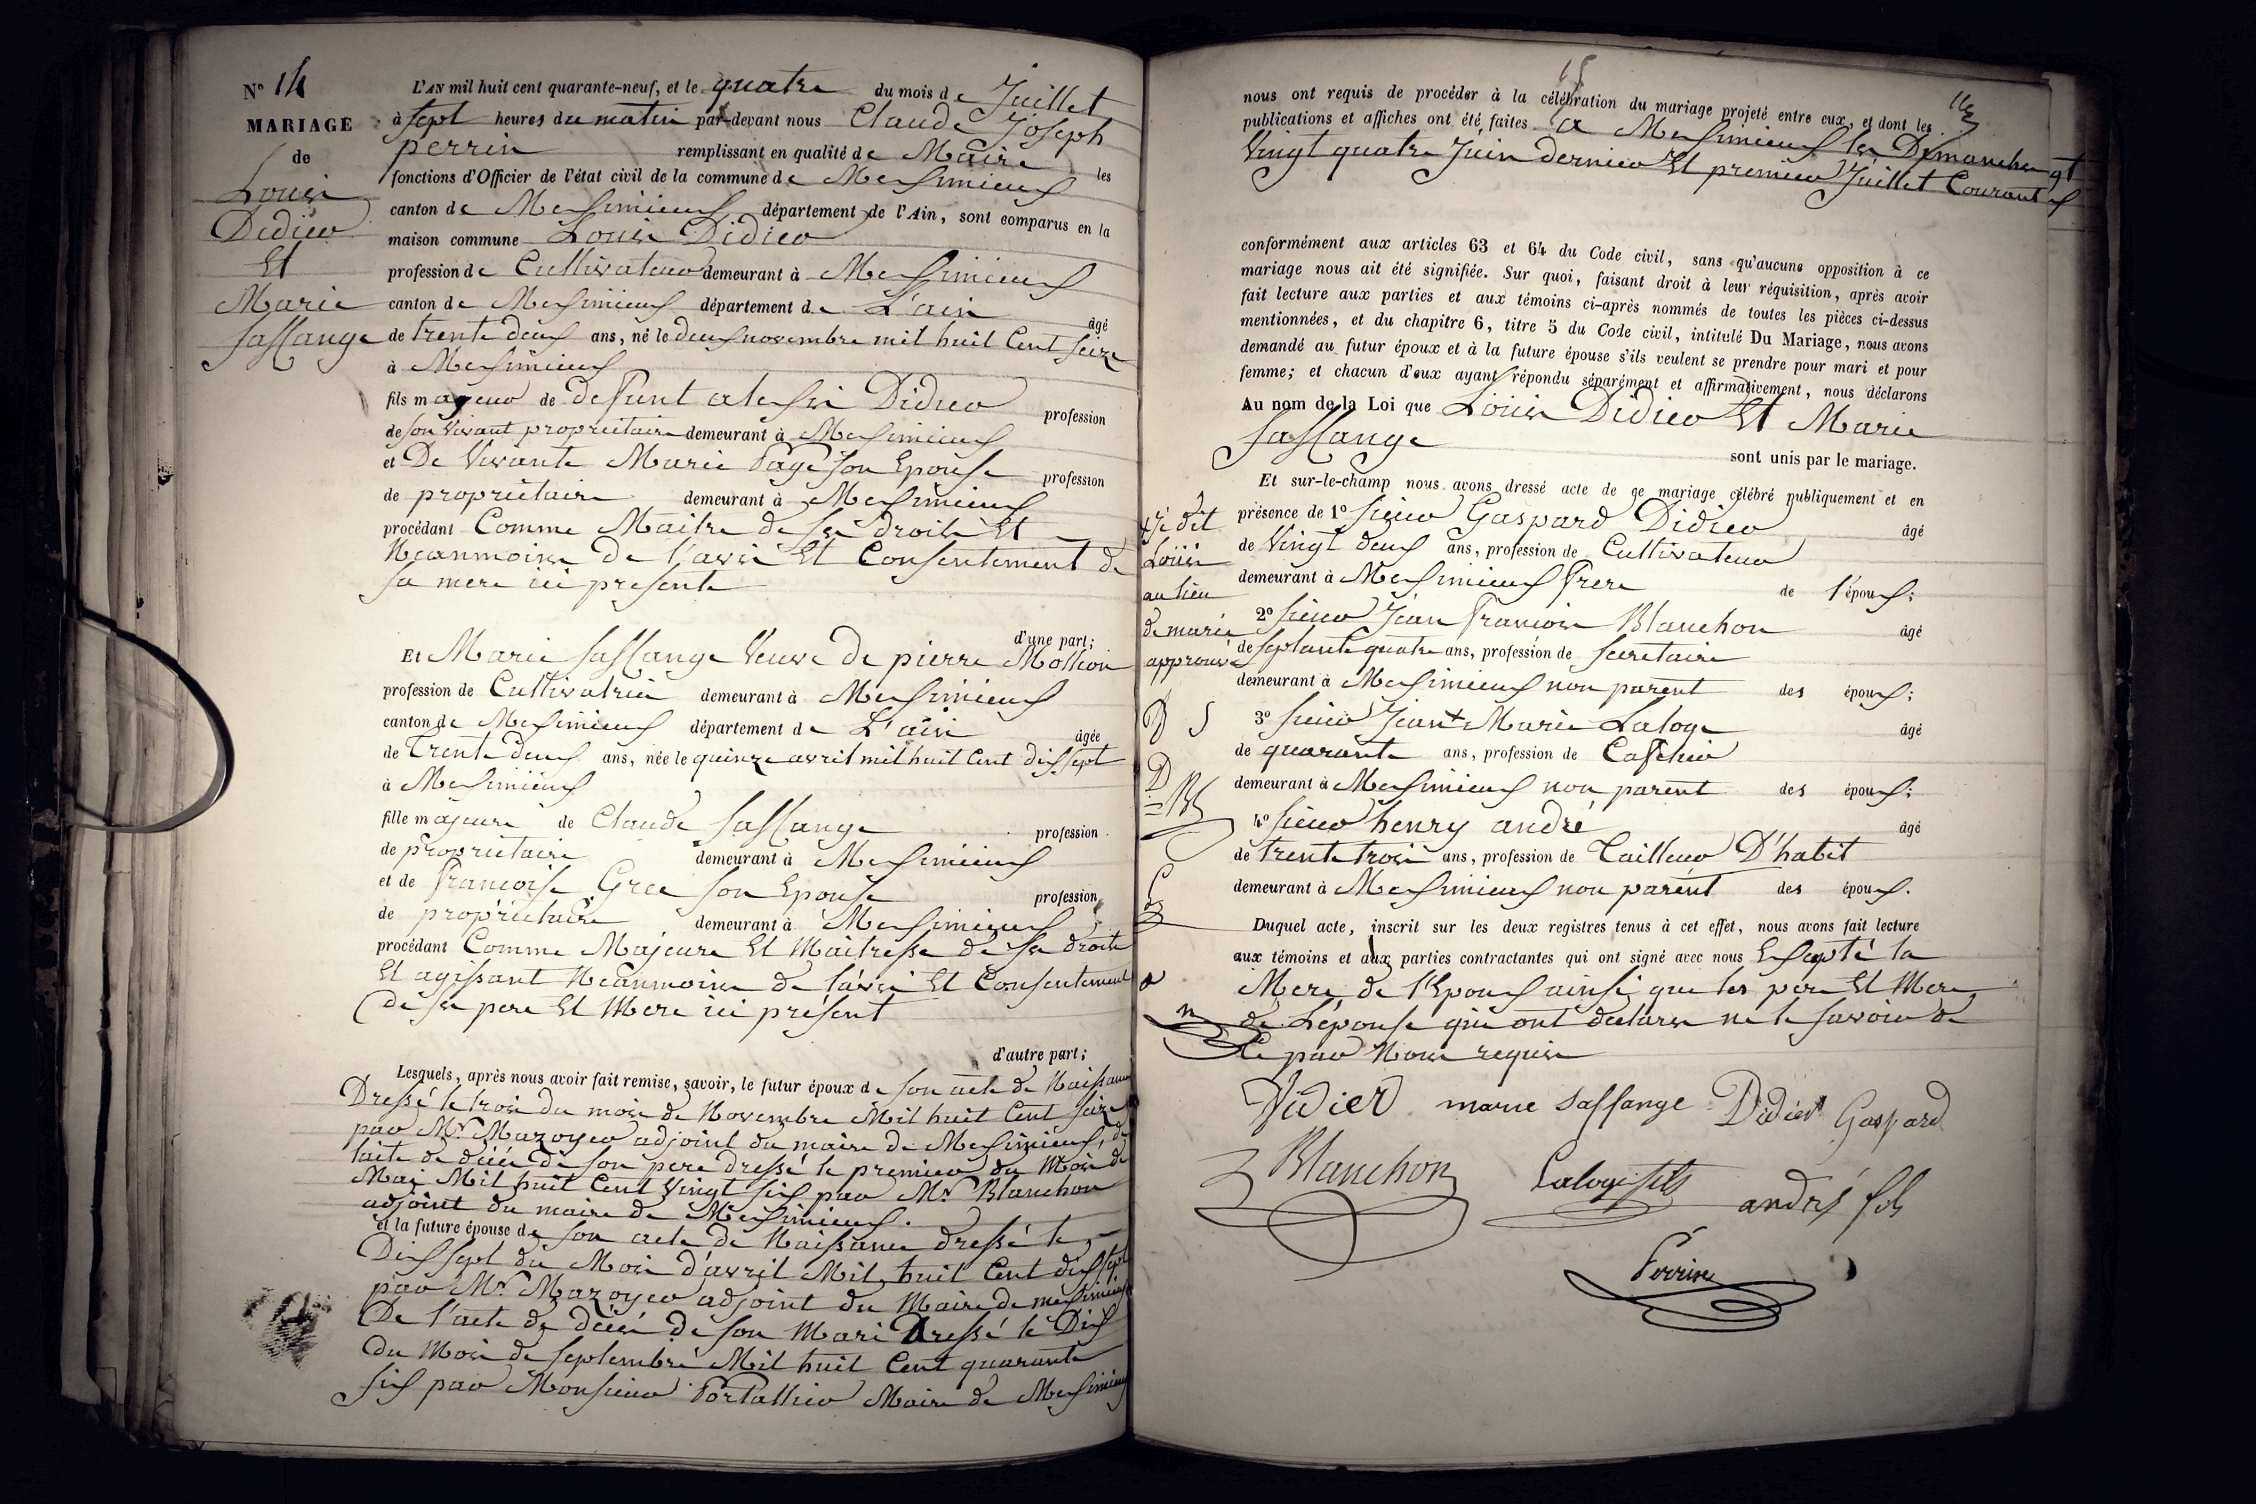 N° 14
MARIAGE
de
Louis
Didier
Et
Marie
Saffange
L'AN mil huit cent quarante-neuf, et le quatre du mois de Juillet
à sept heures du matin par-devant nous Claude Joseph
perrin remplissant en qualité de Maire les
fonctions d'Officier de l'état civil de la commune de Messimieux
canton de Messimieux département de l'Ain, sont comparus en la
maison commune Louis Didier
profession de Cultivateur demeurant à Messimieux
canton de Messimieux département de L'ain âgé
de trente deux ans, né le deux novembre mil huit Cent seize
à Messimieux
fils majeur de defunt alexis Didier profession
de son vivant propriétaire demeurant à Messimieux
et De Vivante Marie Page son Epouse profession
de propriétaire demeurant à Messimieux
procédant Comme Maitre de ses droits Et
Neanmoins De l'avis Et Consentement de
sa mere ici presente
d'une part;
Et Marie Saffange Veuve de pierre Mollion
profession de Cultivatrice demeurant à Messimieux
canton de Messimieux département de L'ain âgée
de Trente deux ans, née le quinze avril mil huit Cent dix sept
à Messimieux
fille majeure de Claude Saffange profession
de propriétaire demeurant à Messimieux
et de Francoise Gree son Epouse profession
de propriétaire demeurant à Messimieux
procédant Comme Majeure Et Maitresse de ses droits
Et agissant Neanmoins de l'avis Et Consentement
de ses pere Et Mere ici présent
d'autre part;
Lesquels, après nous avoir fait remise, savoir, le futur époux de son acte de Naissance
Dressé le trois du mois de Novembre Mil huit Cent seize
par Mr Mazoyer adjoint du maire de Messimieux, de
l'acte de décés de son pere dressé le premier du Mois de
Mai Mil huit Cent Vingt six par Mr Blanchon
adjoint du maire de Messimieux.
et la future épouse de son acte de Naissance dressé le
Dix sept du Mois d'avril Mil huit Cent dix sept
par Mr Mazoyer adjoint du Maire de messimieux
De l'acte de décés de son Mari Dressé le Dix
du Mois de septembre Mil huit Cent quarante
six par Monsieur Portallier Maire de Messimieux
nous ont requis de procéder à la célébration du mariage projeté entre eux, et dont les
publications et affiches ont été faites a Messimieux les Dimanches
Vingt quatre Juin dernier Et premier Juillet Courant
conformément aux articles 63 et 64 du Code civil, sans qu'aucune opposition à ce
mariage nous ait été signifiée. Sur quoi, faisant droit à leur réquisition, après avoir
fait lecture aux parties et aux témoins ci-après nommés de toutes les pièces ci-dessus
mentionnées, et du chapitre 6, titre 5 du Code civil, intitulé Du Mariage, nous avons
demandé au futur époux et à la future épouse s'ils veulent se prendre pour mari et pour
femme; et chacun d'eux ayant répondu séparément et affirmativement, nous déclarons
Au nom de la Loi que Louis Didier Et Marie
Saffange
sont unis par le mariage.
Et sur-le-champ nous avons dressé acte de ce mariage célébré publiquement et en
présence de 1° sieur Gaspard Didier âgé
de Vingt deux ans, profession de Cultivateur
demeurant à Messimieux Frere de l'époux;
2° sieur Jean Francois Blanchon âgé
de septante quatre ans, profession de secretaire
demeurant à Messimieux non parent des époux;
3° sieur Jean Marie Laloge âgé
de quarante ans, profession de Caffetier
demeurant à Messimieux non parent des époux;
4° sieur henry andré âgé
de trente trois ans, profession de Tailleur D'habit
demeurant à Messimieux non parent des époux.
dit
Louis
au lieu
de marie
approuvé
Duquel acte, inscrit sur les deux registres tenus à cet effet, nous avons fait lecture
aux témoins et aux parties contractantes qui ont signé avec nous Excepté la
Mere de l'Epoux ainsi que les pere Et Mere
de L'épouse qui ont déclarés ne le savoir de
Ce par Nous requis
Didier marie Saffange Didier Gaspard
Blanchon Laloge fils andré fils
Perrin